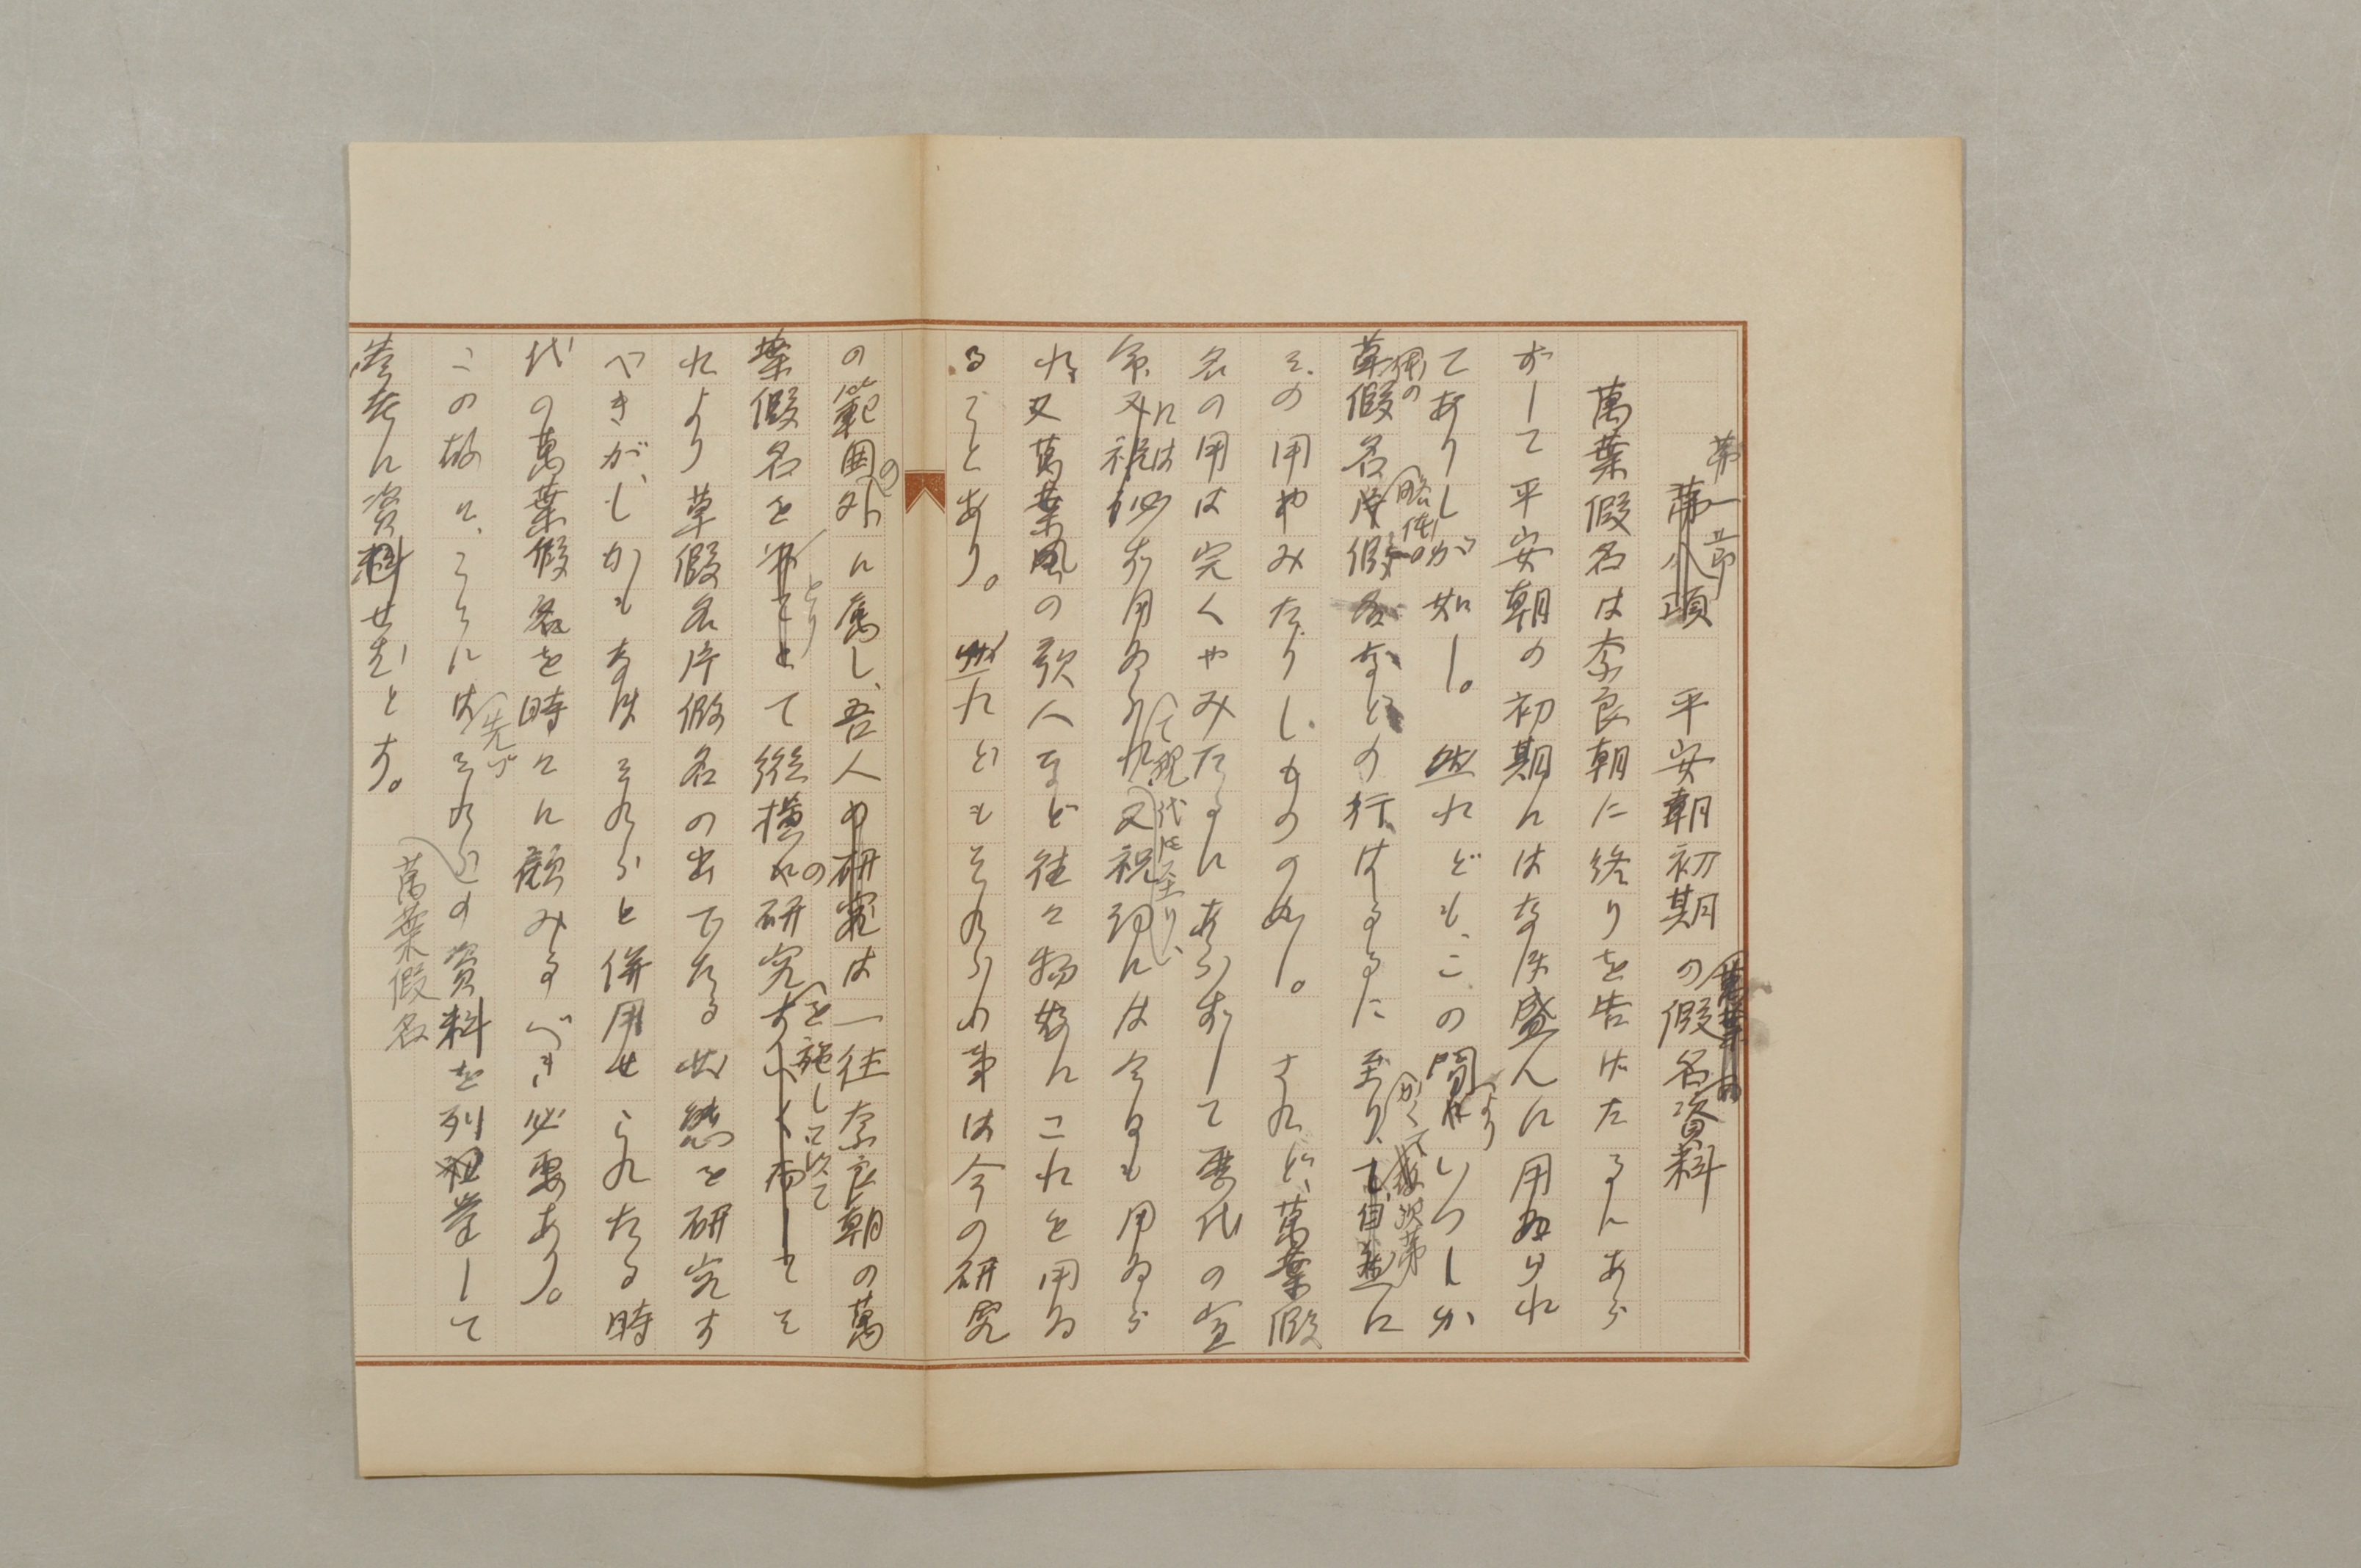 第一節
第八項 平安朝初期の假名資料
萬葉
萬葉假名は奈良朝に終りを告げたるにあら
ずして平安朝の初期にはなほ盛んに用ゐられ
てありしが如し。然れども、この間より いつしか
草假名 略体の 假名などの行はるるに至り、かくて 次第に
その用やみたりしものの如し。されど、萬葉假
名の用は完くやみたるにあらずして歴代の宣
命には必ず用ゐられて現代に至り、又祝詞には今日も用ゐら
れ、又萬葉風の歌人など往々物数にこれを用ゐ
ることあり。然れどもそれらの事は今の研究
の範囲の外に属し、吾人の研究は一往奈良朝の萬
葉假名をとりて縦横の研究を施し以てそ
れより草假名片假名の出でたる状態を研究す
べきが、しかもなほそれらと併用せられたる時
代の萬葉假名を時々に顧みるべき必要あり。
この故に、ここには先づそれらの資料を列挙して
萬葉假名
考究に資料せむとす。